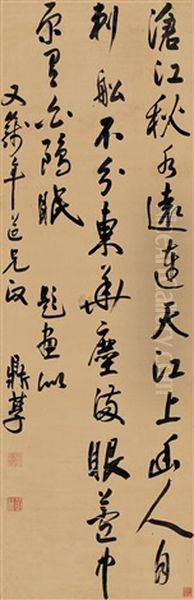 滄江秋水遠連天江上幽人自
刺船不分東華塵滿眼蘆中
原有白鷗眠 題畫似
又年道兄政 鼎孳